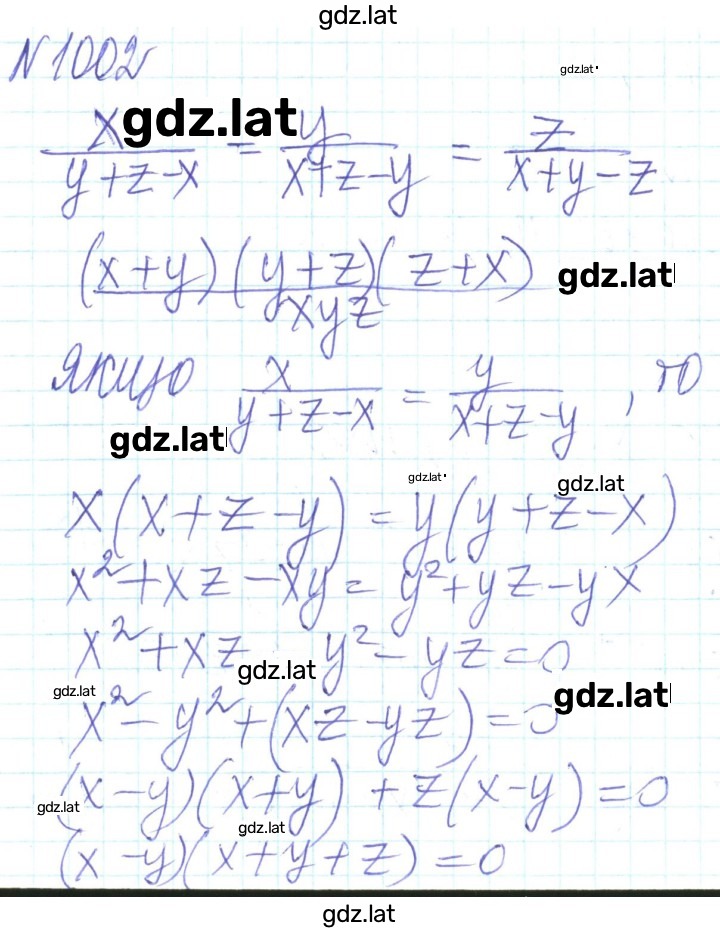 gdz.lat
N 1002
gdz.lat
x/(y+z-x) = y/(x+z-y) = z/(x+y-z)
gdz.lat
(x+y)(y+z)(z+x)/xyz
gdz.lat
якщо x/(y+z-x) = y/(x+z-y), то
gdz.lat
gdz.lat
gdz.lat
x(x+z-y) = y(y+z-x)
x²+xz-xy = y²+yz-yx
x²+xz y²-yz=0
gdz.lat
gdz.lat
gdz.lat
x²-y²+(xz-yz)=0
(x-y)(x+y)+z(x-y)=0
gdz.lat
gdz.lat
(x-y)(x+y+z)=0
gdz.lat